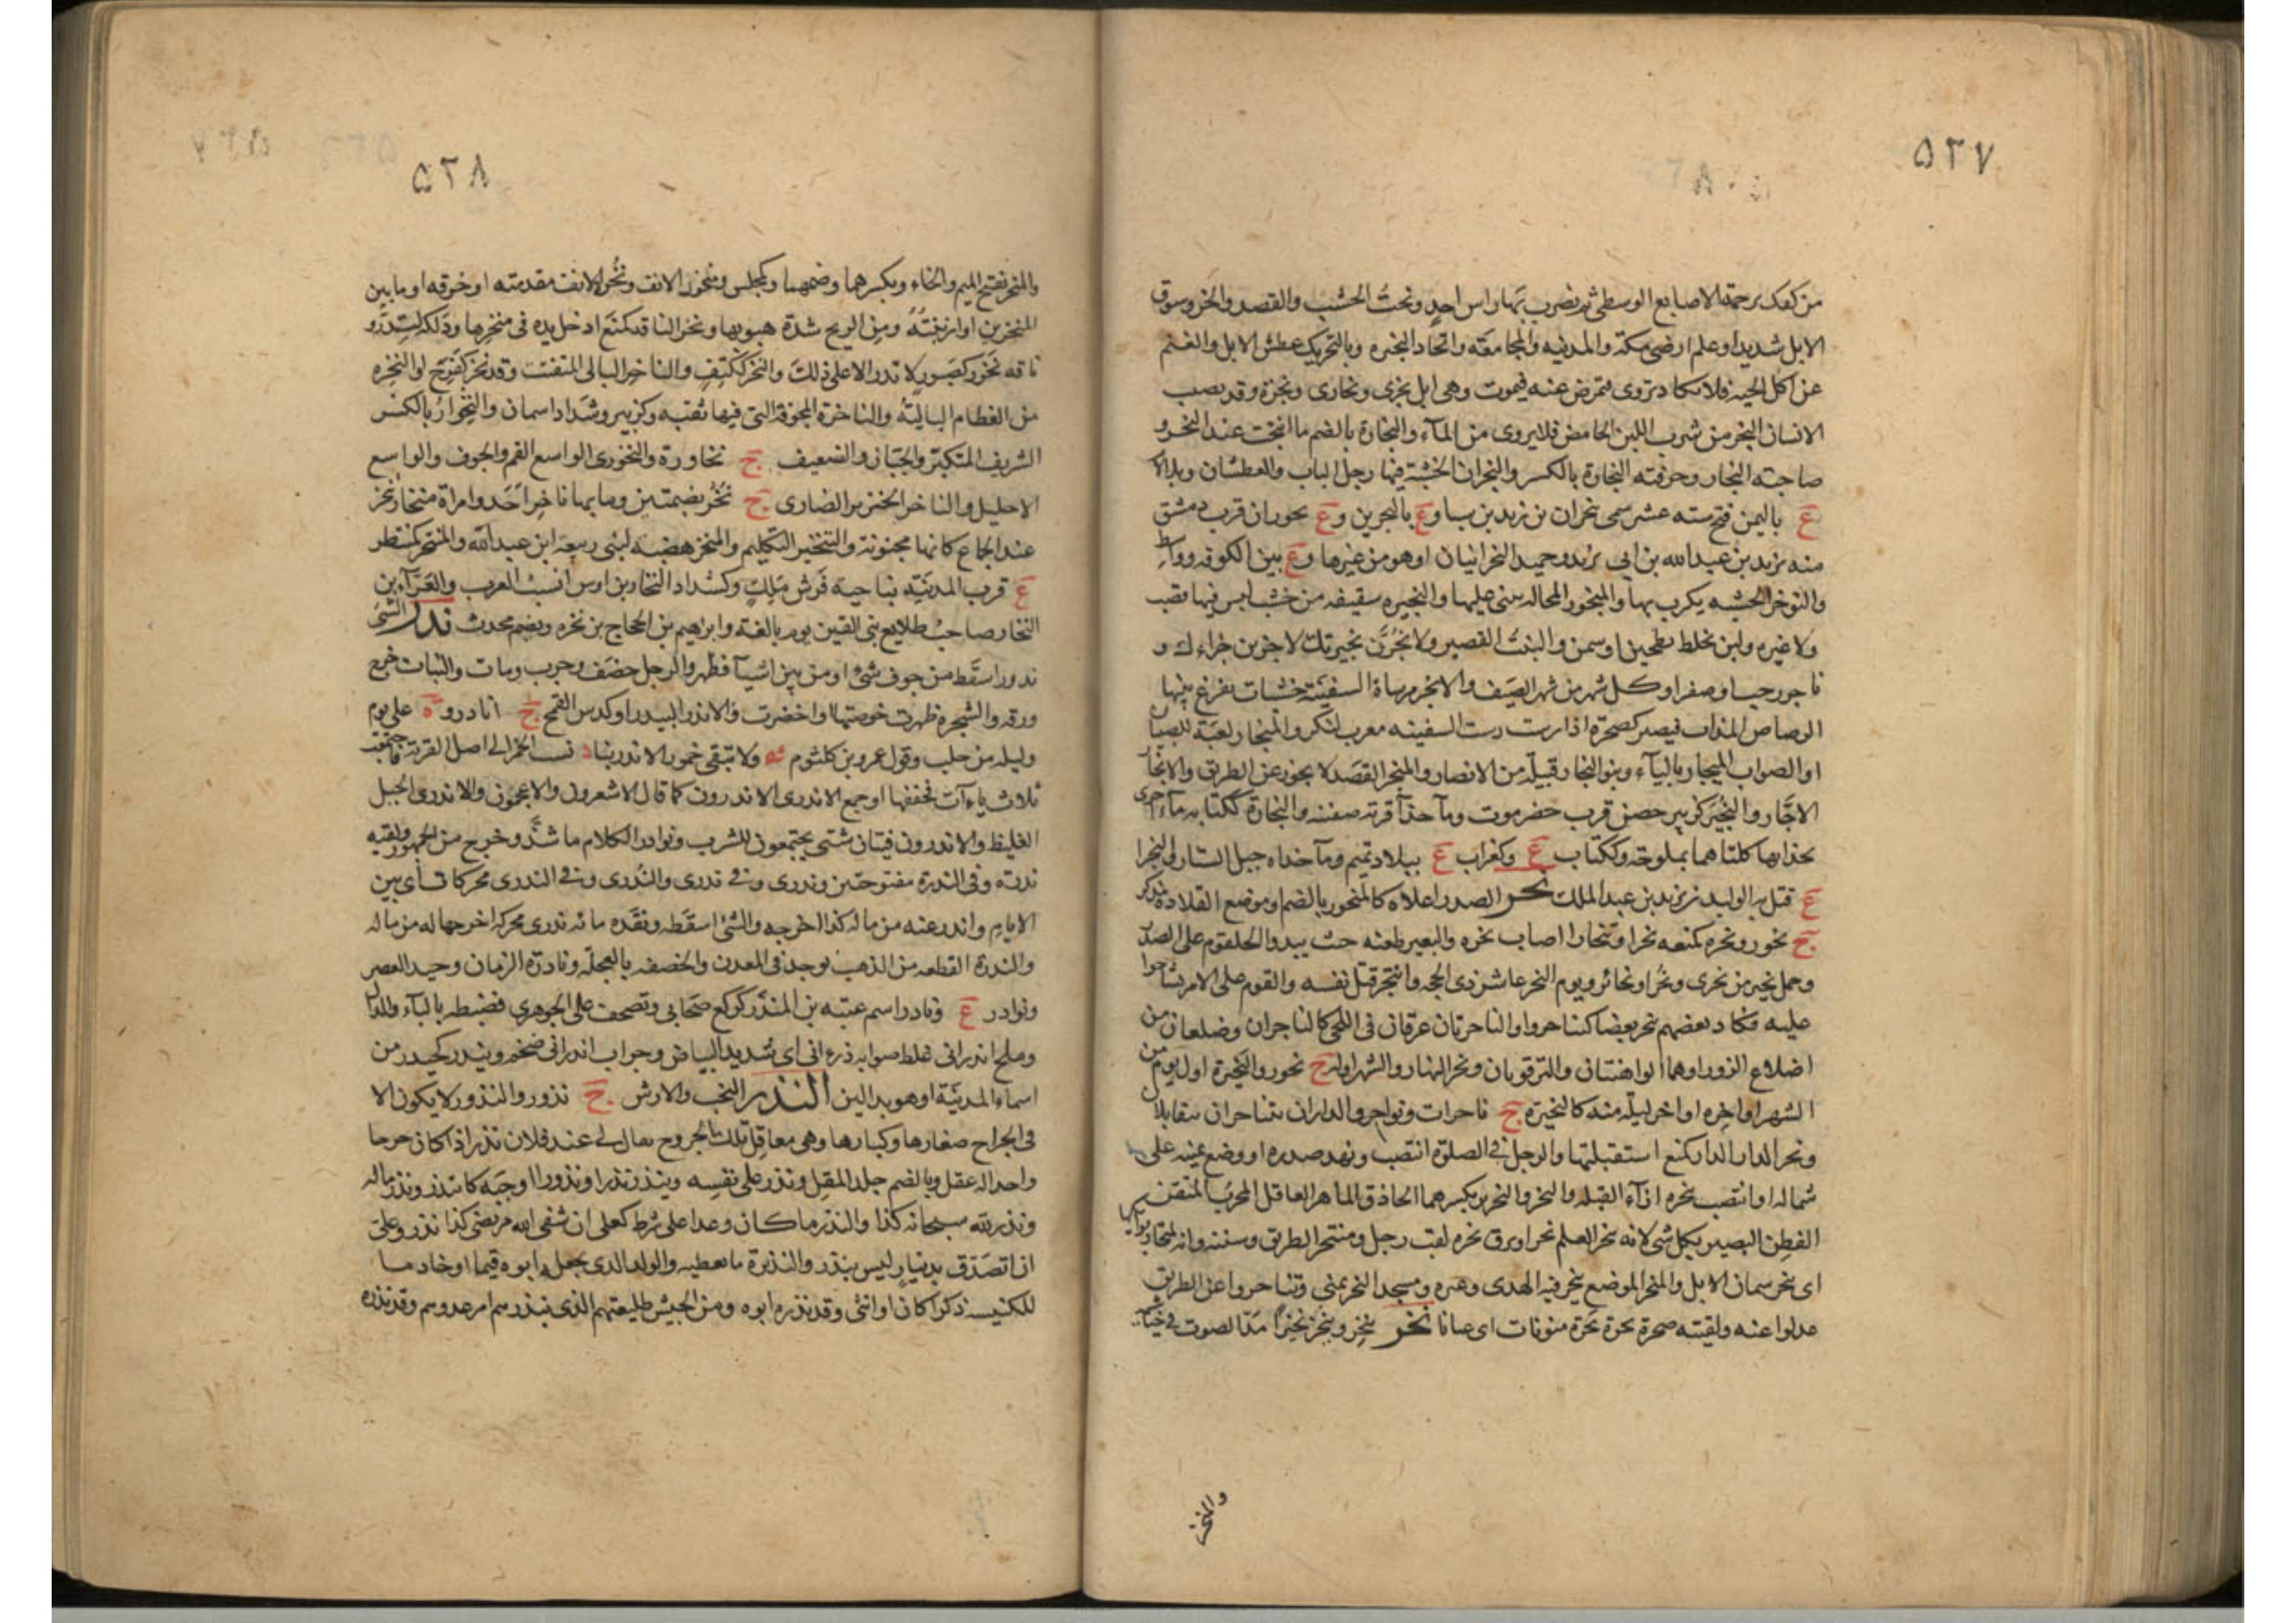 ٥٢٧
من كفك برجمة الاصابع الوسطى ثم يضرب بها راس احد ونحت الخشب والقصد والحر وسوق
الابل شديدا وعلم ارضى مكة والمدينه والمجامعة واتخاد النجيره وبالتحريك عطش الابل والغنم
عن اكل الحبه فلا تكاد تروى فتمرض عنه فيموت وهى ابل نجرى ونجارى ونجرة وقد يصب
الانسان النجر من شرب اللبن الحامض فلا يروى من المآء والنجارة بالضم ما انتحت عند النجر و
صاحبته النجار وحرفته النجارة بالكسر والنجران الخشبة فيها رجل الباب والعطشان وبلا لا
ع باليمن فتح سنه عشر سمى بنجران بن زيد بن سبا وع بالبحرين وع بحوران قرب دمشق
منه يزيد بن عبد الله بن ابى يزيد وحميد النجرانيان او هو من غيرها وع بين الكوفه وواسط
والنوجر الخشبه يكرب بها والمنجور المحاله يسنى عليها والنجيره سقيفه من خشب ليس فيها قصب
ولا غيره ولبن يخلط بطحين او سمن والنبت القصير ولا نجرن نجيرتك لاجزين جزاءك و
ناجر رجب او صفر او كل شهر من شهر الصيف والانجر مرساة السفينة خشبات يفرغ بينها
الرصاص المذاب فيصير كصخرة اذا رست رست السفينه معرب لنكر والمنجار لعبة للصبيان
او الصواب الميجار بالياء وبنو النجار قبيلة من الانصار والمنجر القصد لا يجوز عن الطريق والانجار
الاجار والنجير كزبير حصن قرب حضرموت ومآ حذآ قرية صفينه والنجارة ككتابه مآءة اخرى
بحذائها كلتاهما بملوحة وككتاب ع وكغراب ع ببلاد تميم ومآ حذاه جبل الستار والنجرا
ع قتل به الوليد بن يزيد بن عبد الملك نحر الصدر اعلاه كالمنحور بالضم او موضع القلادة مذكر
ج نحور ونحره كمنعه نحرا وتنحارا اصاب نحره والبعير طعنه حيث يبدو الحلقوم على الصدر
وجمل نحير من نحرى ونحرا ونحائر ويوم النحر عاشر ذى الحجه وانتحر قتل نفسه والقوم على الامر تشاحوا
عليه فكاد بعضهم ينحر بعضا كتناحروا والناحرتان عرقان فى اللحى كالناحران وضلعان من
اضلاع الزور او هما الواهنتان والترقوتان ونحر النهار والشهر اوله ج نحور والنحيرة اول يوم من
الشهر او اخره او اخر ليلة منه كالنحيرة ج ناحرات ونواحر والداران تتناحران تتقابلان
ونحر الدار الدار كمنع استقبلتها والرجل فى الصلوة انتصب ونهد صدره او وضع يمينه على
شماله او انتصب بنحره ازآء القبله والنحر والنحرير بكسرهما الحاذق الماهر العاقل المجرب المتقن
الفطن البصير بكل شى لانه ينحر العلم نحرا وبرق نحره لقب رجل ومنتحر الطريق وسننه وانه لمنحار بوائكها
اى ينحر سمان الابل والمنحر الموضع ينحر فيه الهدى وغيره ومسجد النحر بمنى وتناحروا عن الطريق
عدلوا عنه ولقيته صحرة بحرة نحرة منونات اى عيانا نخر ينخر وينخر نخيرا مد الصوت فى خياشيمه
والمنخر
٥٢٨
والمنخر بفتح الميم والخاء وبكسرهما وضمهما وكمجلس ومنخور الانف ونخرة الانف مقدمته او خرقه او ما بين
المنخرين او ارنبته ومن الريح شدة هبوبها ونخر الناقه كمنع ادخل يده فى منخرها ودلكه لتدر و
ناقه نخور كصبور لا تدر الا على ذلك والنخر ككتف والناخر البالى المتفتت وقد نخر كفرح او النخره
من العظام البالية والناخرة المجوفة التى فيها ثقبه وكزبير وشداد اسمان والنخوار بالكسر
الشريف المتكبر والجبان والضعيف ج نخاورة والنخورى الواسع الفم والجوف والواسع
الاحليل والناخر الخنزير الضارى ج نخر بضمتين وما بها ناخر احد وامراة منخار تنخر
عند الجماع كانها مجنونة والتنخير التكليم والمنخر هضبه لبنى ربيعة ابن عبد الله والمنتخر كمنتظر
ع قرب المدينة بناحية فرش ملك وكشداد النخار بن اوس انسب العرب والعدآء بن
النخار صاحب طلايع بنى القين يوم بالغة وابراهيم بن الحجاج بن نخره وبضم محدث ندر الشى
ندورا سقط من جوف شئ او من بين اشيآ فظهر والرجل خضف وجرب ومات والنبات خرج
ورقه والشجره ظهرت خوصتها واخضرت والاندر البيدر او كدس القمح ج انادر وة على يوم
وليله من حلب وقول عمرو بن كلثوم شه ولا تبقى خمور الاندرينا نسب الخمر الى اصل القرية فاجتمعت
ثلاث ياءآت فخففها او جمع الاندرى الاندرون كما قال الاشعرون والاعجمون والاندرى الحبل
الغليظ والاندرون فتيان شتى يجتمعون للشرب ونوادر الكلام ما شذ وخرج من الجمهور ولقيه
ندرة وفى الندرة مفتوحتين وندرى وفى ندرى والندرى وفى الندرى محركات اى بين
الايام واندر عنه من ماله كذا اخرجه والشئ اسقطه ونقده مائه ندرى محركه اخرجها له من ماله
والندرة القطعه من الذهب توجد فى المعدن والخصفه بالعجلة ونادرة الزمان وحيد العصر
ونوادر ع ونادر اسم عتبه بن المندر كركع صحابى وتصحف على الجوهرى فضبطه بالبآء والدال
وملح اندرانى غلط صوابه ذرءانى اى شديد البياض وجراب اندرانى ضخم ويندر كحيدر من
اسماء المدينة او هو بدالين النذر النحب والارش ج نذور والنذور لا يكون الا
فى الجراح صغارها وكبارها وهى معاقل تلك الجروح يقال لى عند فلان نذر اذا كان جرحا
واحدا له عقل وبالضم جلد المقل ونذر على نفسه وينذر نذرا ونذورا اوجبه كانتذر ونذر ماله
ونذر لله سبحانه كذا والنذر ما كان وعدا على شرط كعلى ان شفى الله مريضى كذا نذر وعلى
ان اتصدق بدينار ليس بنذر والنذيرة ما تعطيه والولد الذى يجعله ابوه قيما او خادما
للكنيسة ذكرا كان او انثى وقد نذره ابوه ومن الجيش طليعتهم الذى ينذرهم امر عدوهم وقد نذره